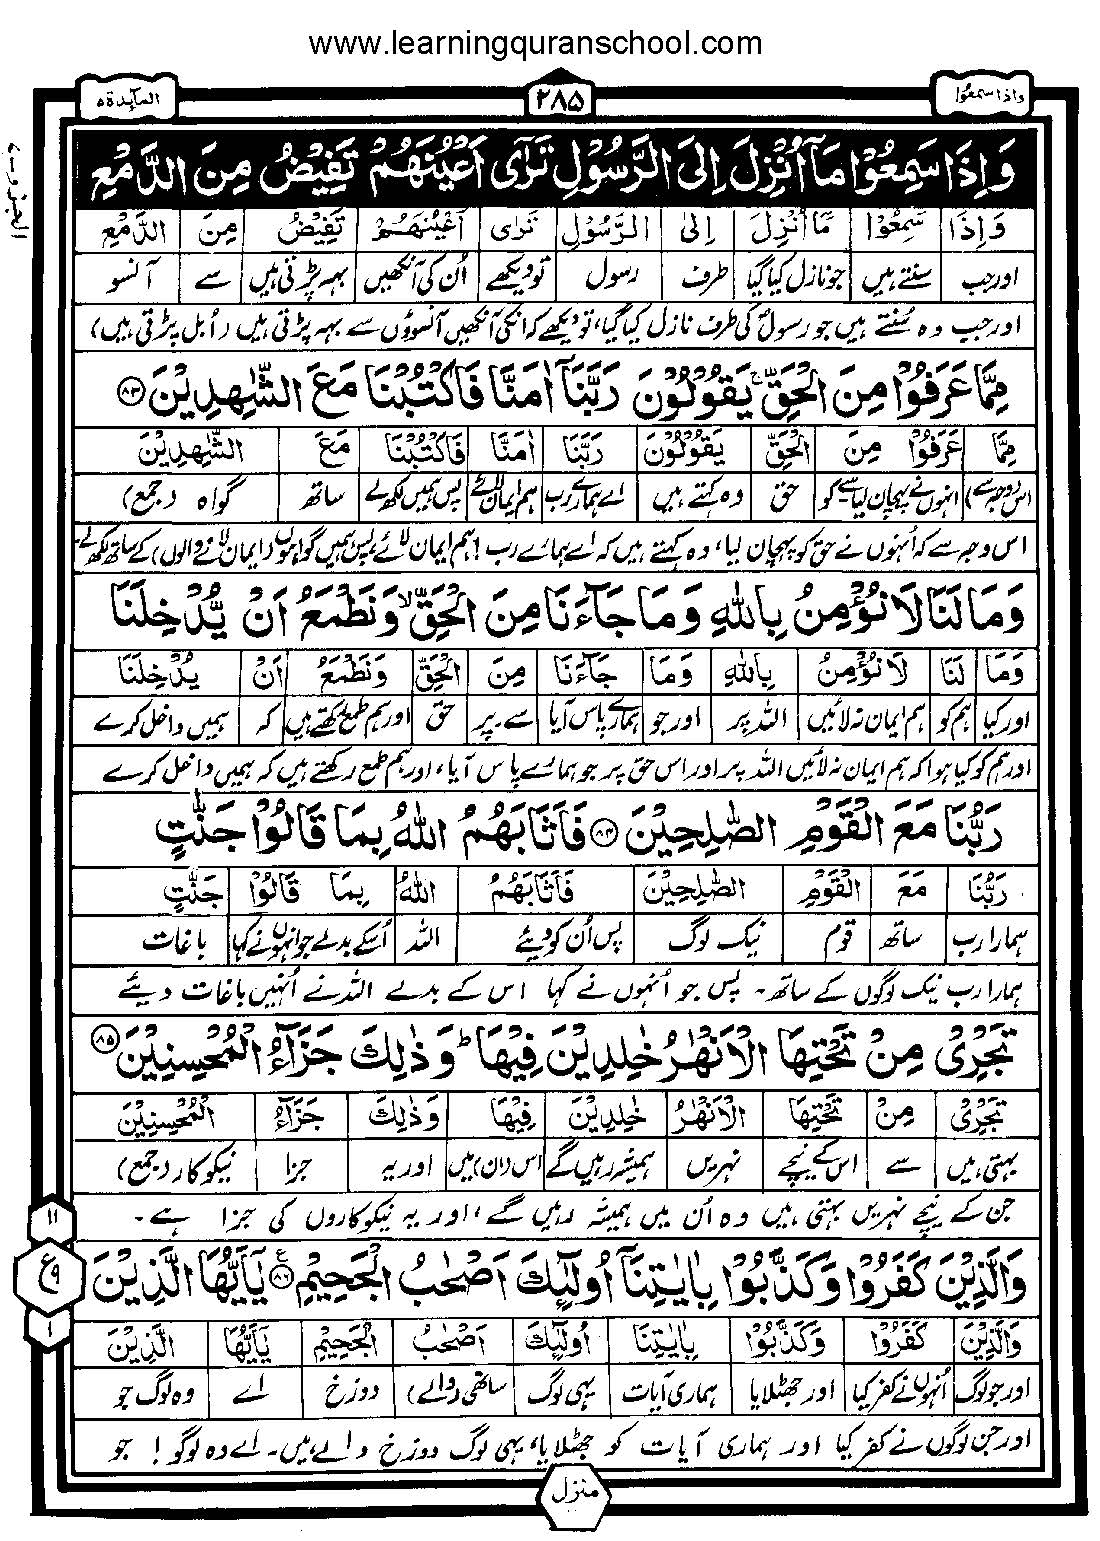 www.learningquranschool.com
واذاسمعوا ٢٨۵ المآئدة ۵
وَاِذَا سَمِعُوْا مَاۤ اُنْزِلَ اِلَى الرَّسُوْلِ تَرٰۤى اَعْيُنَهُمْ تَفِيْضُ مِنَ الدَّمْعِ
وَاِذَا سَمِعُوْا مَاۤ اُنْزِلَ اِلَى الرَّسُوْلِ تَرٰى اَعْيُنَهُمْ تَفِيْضُ مِنَ الدَّمْعِ
اور جب سنتے ہیں جو نازل کیا گیا طرف رسول تو دیکھے اُن کی آنکھیں بہہ پڑتی ہیں سے آنسو
اور جب وہ سُنتے ہیں جو رسولؐ کی طرف نازل کیا گیا، تو دیکھے کہ انکی آنکھیں آنسوؤں سے بہہ پڑتی ہیں (اُبل پڑتی ہیں)
مِمَّا عَرَفُوْا مِنَ الْحَقِّ ۚ يَقُوْلُوْنَ رَبَّنَاۤ اٰمَنَّا فَاكْتُبْنَا مَعَ الشّٰهِدِيْنَ ﴿۸۳﴾
مِمَّا عَرَفُوْا مِنَ الْحَقِّ يَقُوْلُوْنَ رَبَّنَا اٰمَنَّا فَاكْتُبْنَا مَعَ الشّٰهِدِيْنَ
(اس وجہ سے) انہوں نے پہچان لیا سے۔کو حق وہ کہتے ہیں اے ہمارے رب ہم ایمان لائے پس ہمیں لکھ لے ساتھ گواہ (جمع)
اس وجہ سے کہ اُنہوں نے حق کو پہچان لیا، وہ کہتے ہیں کہ اے ہمارے رب! ہم ایمان لائے، پس ہمیں گواہوں (ایمان لانے والوں) کے ساتھ لکھ لے۔
وَمَا لَنَا لَا نُؤْمِنُ بِاللّٰهِ وَمَا جَآءَنَا مِنَ الْحَقِّ ۙ وَنَطْمَعُ اَنْ يُّدْخِلَنَا
وَمَا لَنَا لَا نُؤْمِنُ بِاللّٰهِ وَمَا جَآءَنَا مِنَ الْحَقِّ وَنَطْمَعُ اَنْ يُدْخِلَنَا
اور کیا ہم کو ہم ایمان نہ لائیں اللہ پر اور جو ہمارے پاس آیا سے۔پر حق اور ہم طمع رکھتے ہیں کہ ہمیں داخل کرے
اور ہم کو کیا ہوا کہ ہم ایمان نہ لائیں اللہ پر اور اس حق پر جو ہمارے پاس آیا، اور ہم طمع رکھتے ہیں کہ ہمیں داخل کرے
رَبُّنَا مَعَ الْقَوْمِ الصّٰلِحِيْنَ ﴿۸۴﴾ فَاَثَابَهُمُ اللّٰهُ بِمَا قَالُوْا جَنّٰتٍ
رَبُّنَا مَعَ الْقَوْمِ الصّٰلِحِيْنَ فَاَثَابَهُمُ اللّٰهُ بِمَا قَالُوْا جَنّٰتٍ
ہمارا رب ساتھ قوم نیک لوگ پس اُن کو دیئے اللہ اُسکے بدلے جو انہوں نے کہا باغات
ہمارا رب نیک لوگوں کے ساتھ۔ پس جو اُنہوں نے کہا اس کے بدلے اللہ نے اُنہیں باغات دیئے
تَجْرِيْ مِنْ تَحْتِهَا الْاَنْهٰرُ خٰلِدِيْنَ فِيْهَا ؕ وَذٰلِكَ جَزَآءُ الْمُحْسِنِيْنَ ﴿۸۵﴾
تَجْرِيْ مِنْ تَحْتِهَا الْاَنْهٰرُ خٰلِدِيْنَ فِيْهَا وَذٰلِكَ جَزَآءُ الْمُحْسِنِيْنَ
بہتی ہیں سے اس کے نیچے نہریں ہمیشہ رہیں گے اس (ان) میں اور یہ جزا نیکوکار (جمع)
جن کے نیچے نہریں بہتی ہیں وہ اُن میں ہمیشہ رہیں گے، اور یہ نیکوکاروں کی جزا ہے۔
وَالَّذِيْنَ كَفَرُوْا وَكَذَّبُوْا بِاٰيٰتِنَاۤ اُولٰٓئِكَ اَصْحٰبُ الْجَحِيْمِ ﴿۸۶﴾ ع يٰۤاَيُّهَا الَّذِيْنَ
وَالَّذِيْنَ كَفَرُوْا وَكَذَّبُوْا بِاٰيٰتِنَا اُولٰٓئِكَ اَصْحٰبُ الْجَحِيْمِ يٰۤاَيُّهَا الَّذِيْنَ
اور جو لوگ اُنہوں نے کفر کیا اور جھٹلایا ہماری آیات یہی لوگ ساتھی (والے) دوزخ اے وہ لوگ جو
اور جن لوگوں نے کفر کیا اور ہماری آیات کو جھٹلایا، یہی لوگ دوزخ والے ہیں۔ اے وہ لوگو! جو
۱۱
ع ۹
۱
منزل